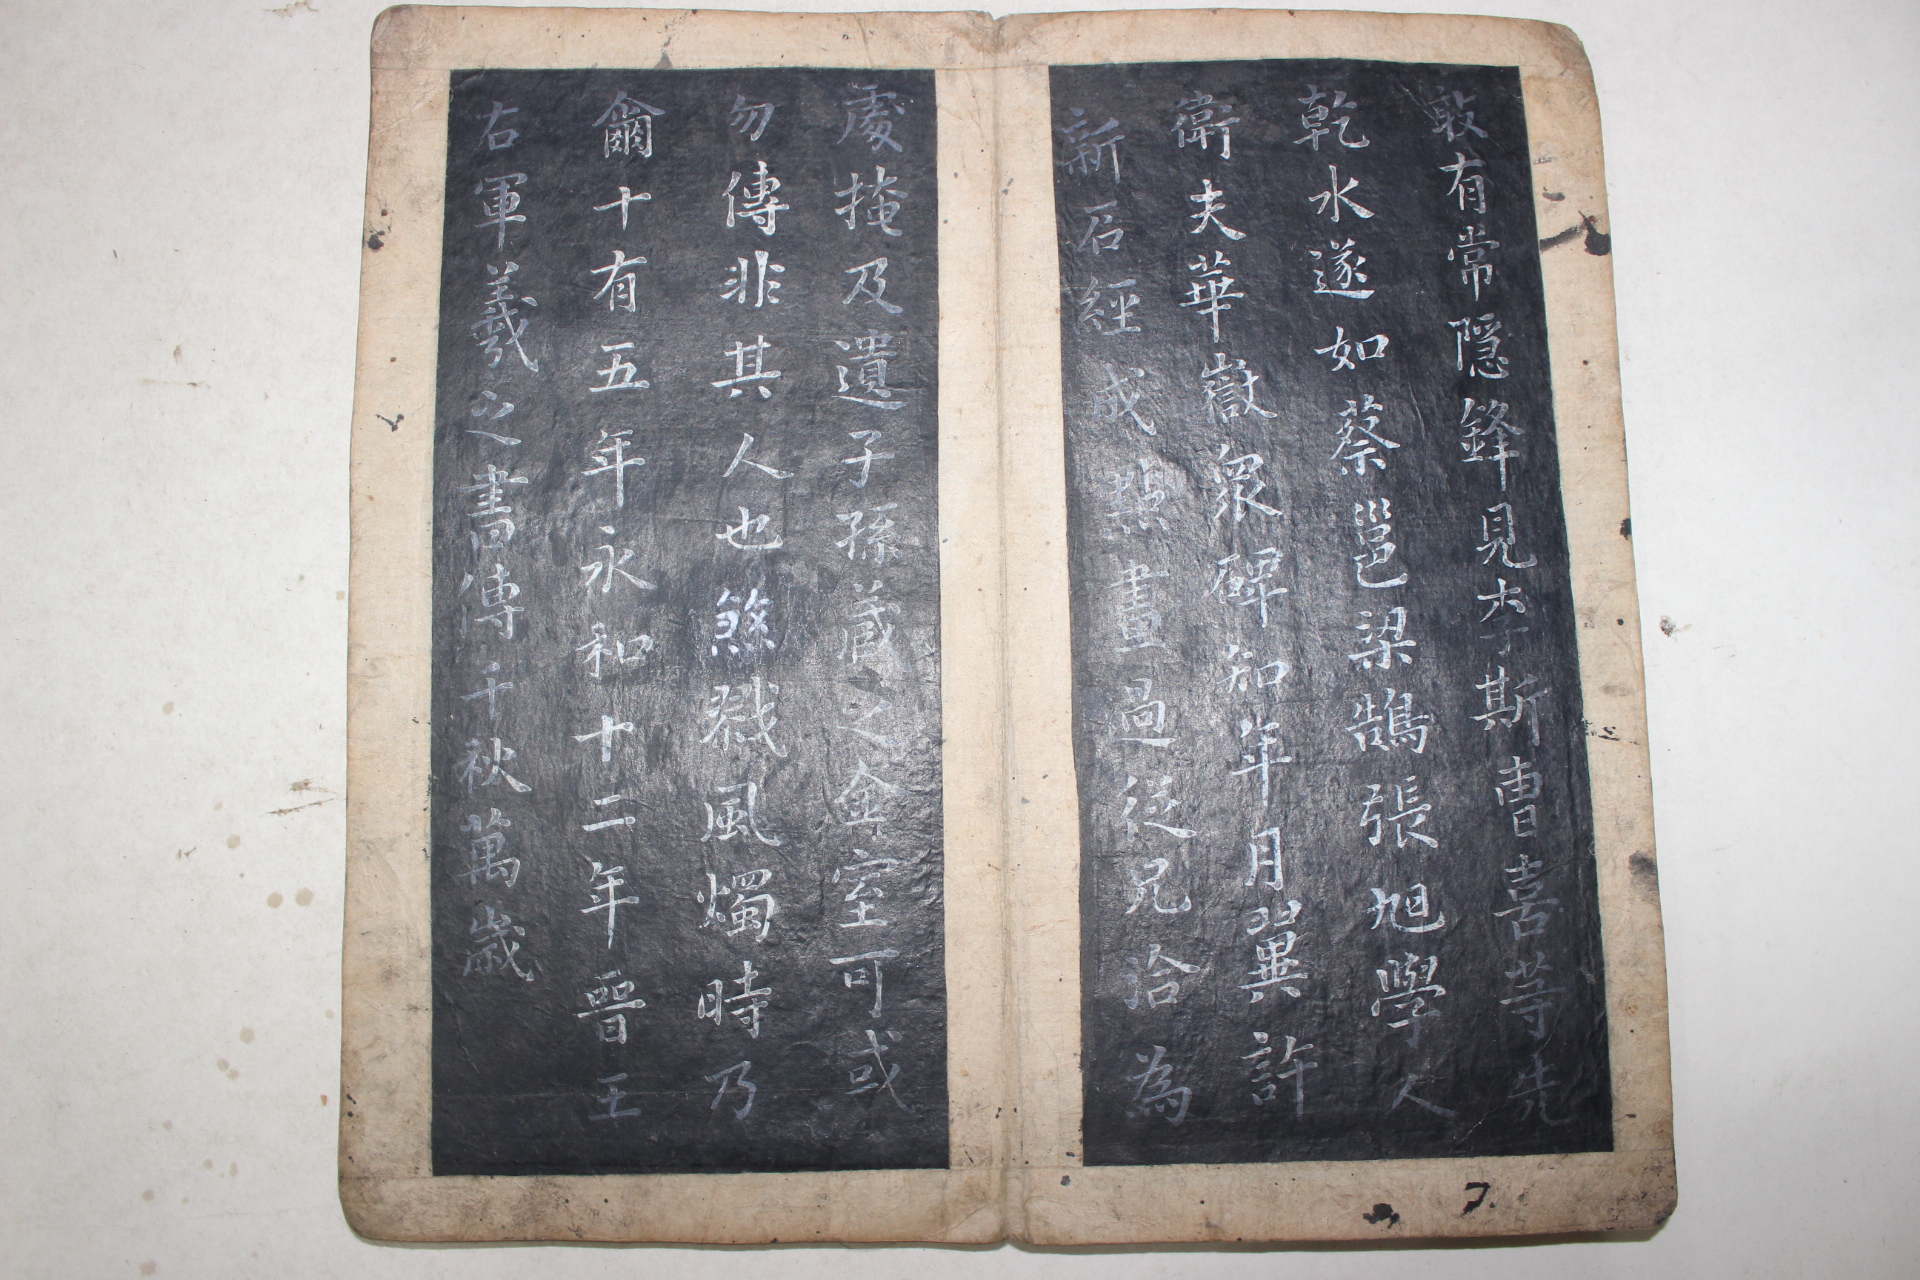 敢有常隱鋒見李斯曹喜等先
乾水遂如蔡邕梁鵠張旭學人
衛夫華嶽衆碑知年月冀許
新石經成點畫過從兄洽為
處掩及遺子孫藏之金室可或
勿傳非其人也煞戮風燭時乃
爾十有五年永和十二年晉王
右軍羲之書傳千秋萬歲